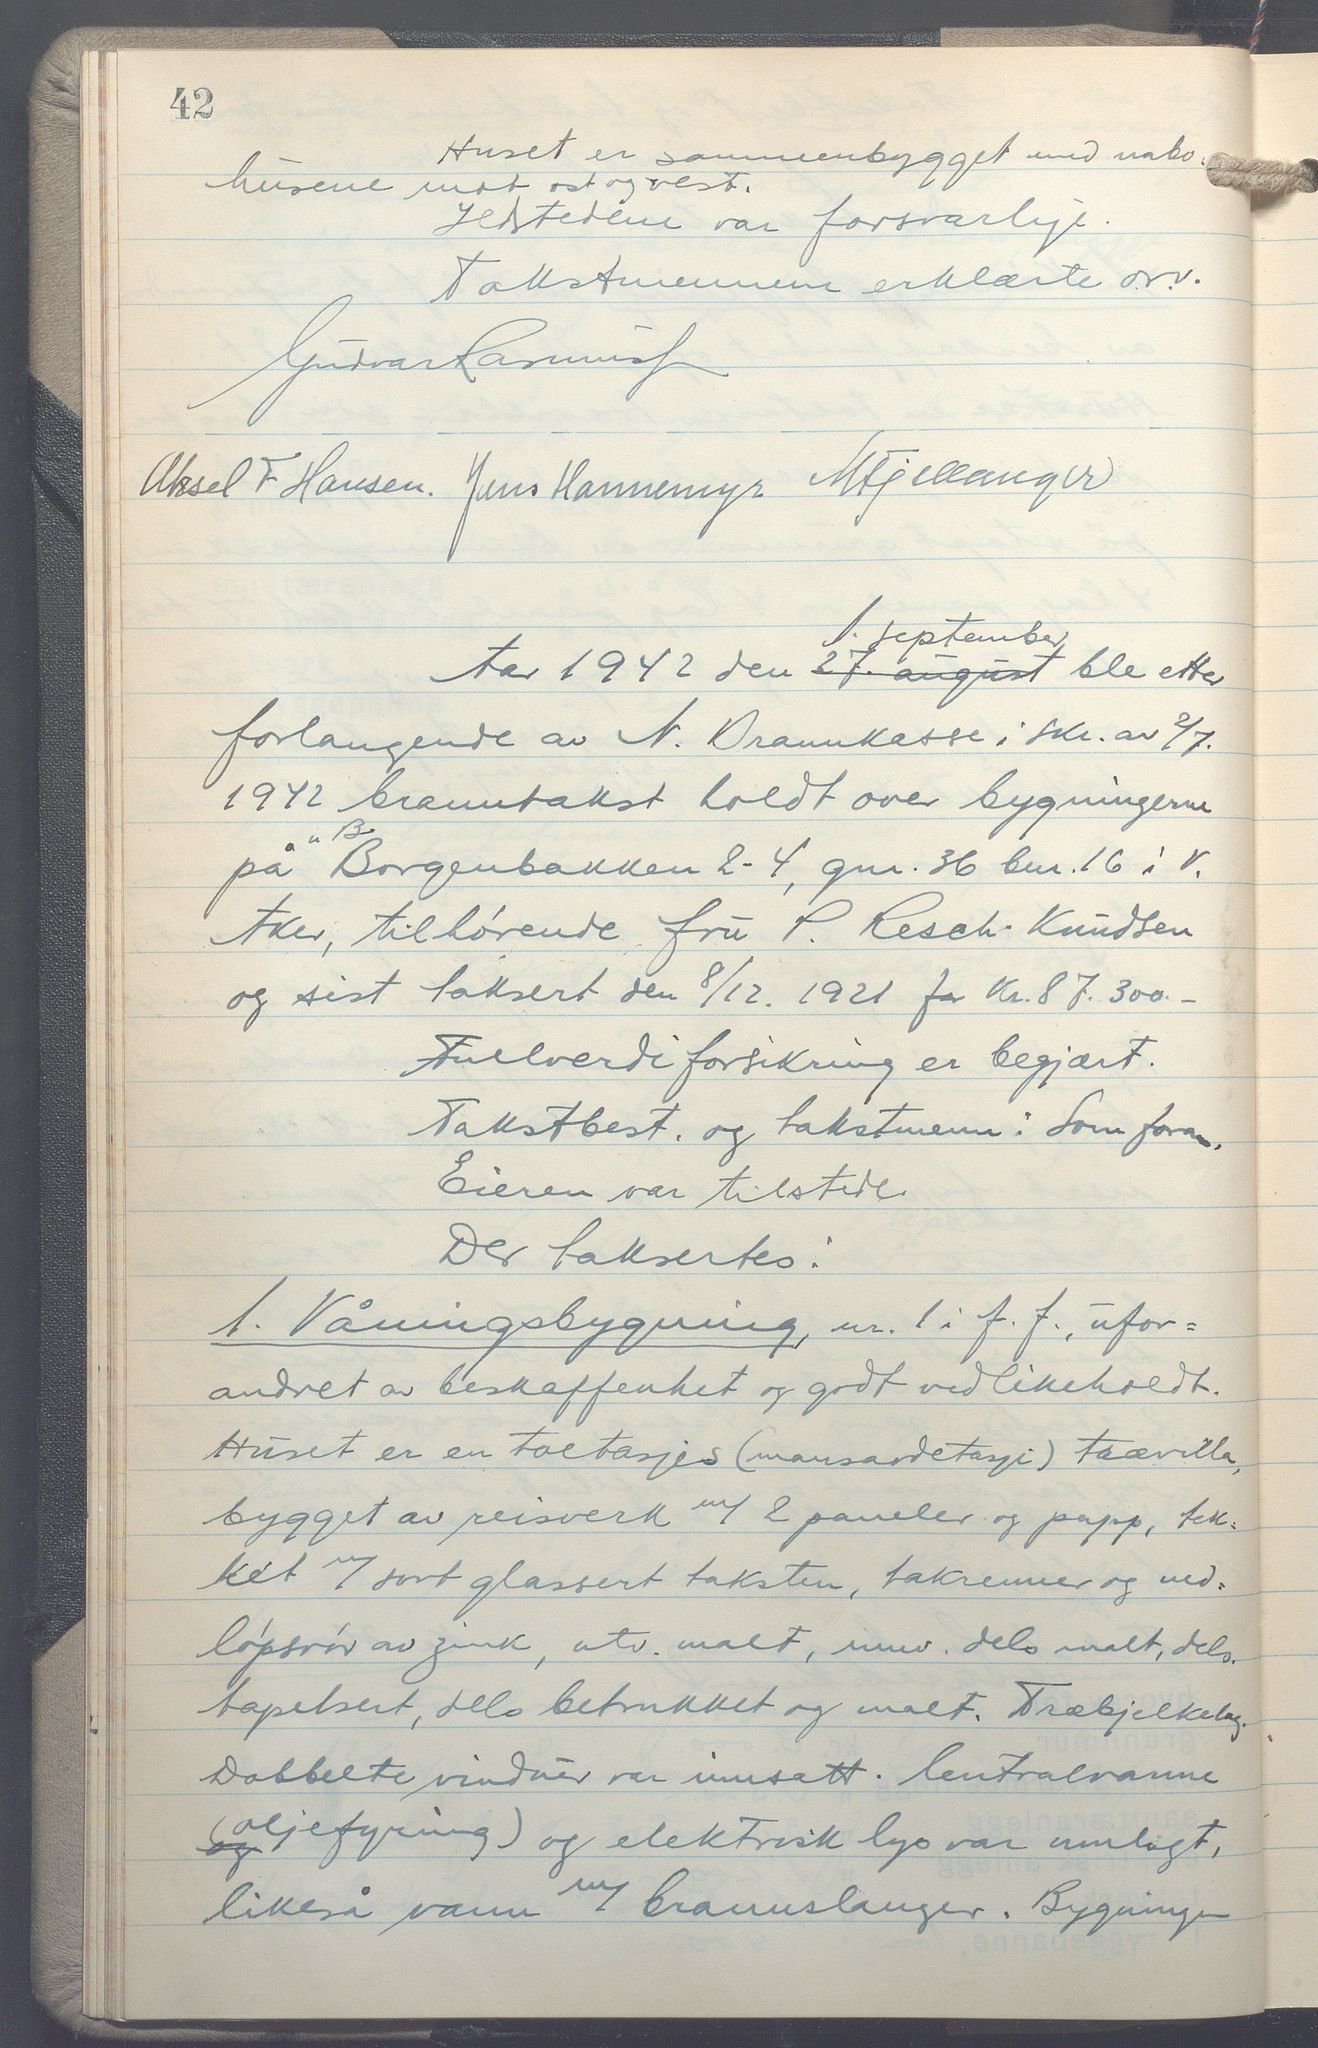 42
Huset er sammenbygget med nabo-
husene mot øst og vest.
Ildstedene var forsvarlige.
Takstmennene erklærte o.s.v.
Aksel F Hansen. Jens Hannemyr M Gjellanger
Aar 1942 den 27. august 1. september ble etter
forlangende av N. Brannkasse i skr. av 2/7.
1942 branntakst holdt over bygningene
på "B Borgenbakken 2-4, gnr. 36 bnr. 16 i V.
Aker, tilhørende fru P. Resch-Knudsen
og sist taksert den 8/12. 1921 for Kr. 87.300.-
Fullverdiforsikring er begjært.
Takstbest. og takstmenn: Som foran.
Eieren var tilstede.
Der taksertes:
1. Våningsbygning, nr. 1 i f. f., ufor=
andret av beskaffenhet og godt vedlikeholdt.
Huset er en toetasjes (mansardetasje) trævilla,
bygget av reisverk m/ 2 paneler og papp, tek=
ket m/ sort glassert taksten, takrenner og ned=
løpsrør av zink, utv. malt, innv. dels malt, dels
tapetsert, dels betrukket og malt. Træbjelkelag.
Dobbelte vinduer var innsatt. Centralvarme
og (oljefyring) og elektrisk lys var innlagt,
likeså vann m/ brannslanger. Bygningen